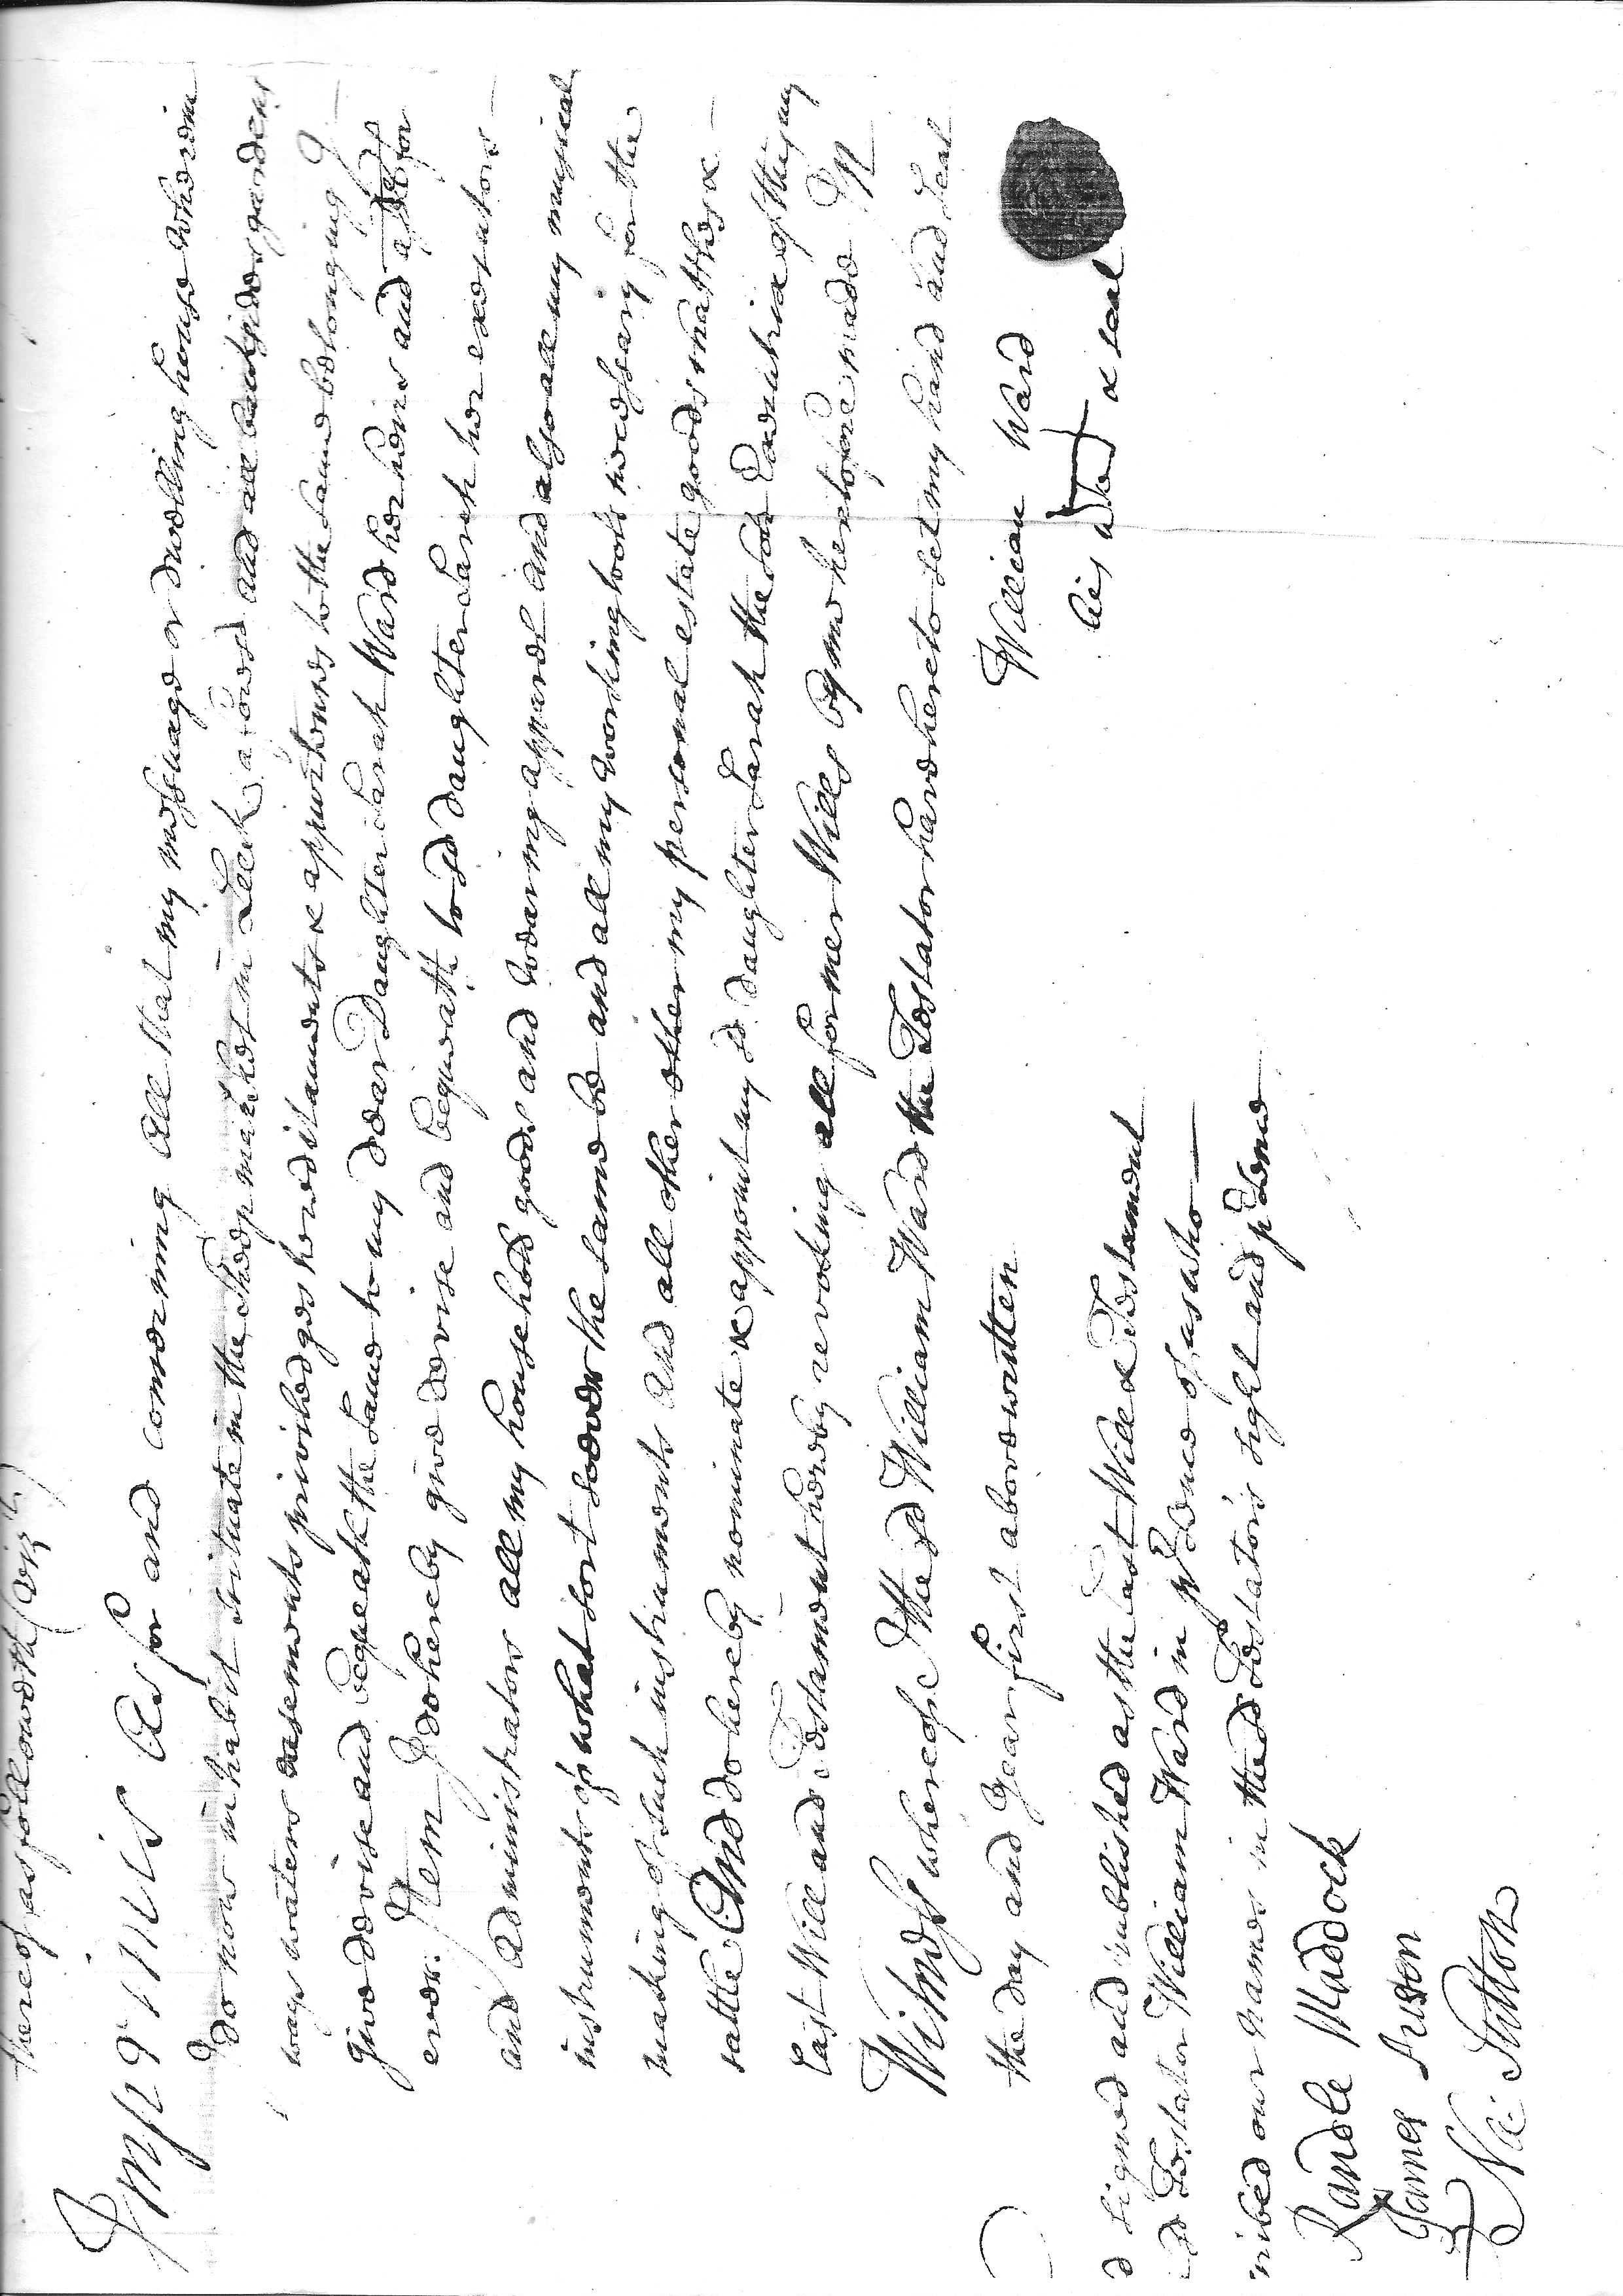 thereof as followeth (vizt)
Imprimis As for and concerning All that my messuage or dwelling house wherein
I do now inhabit scituate in the Sheep market in Leek afores'd and all outsides gardens
ways waters easements priviledges hereditaments & appurtenns to the same belonging I
give devise and bequeath the same to my dear Daughter Sarah Ward her heirs and assignes for
ever. Item I do hereby give devise and bequeath to sd daughter Sarah her executors
and Administrators all my household goods and wearing apparel and also all my musical
instruments of what sort soever the same be and all my working tools necessary for the
making of such instruments And all other other my personal estate goods chattles &
cattle And do hereby nominate & appoint my sd daughter Sarah the sole Executrix of this my
last Will and Testament hereby revoking all former Wills by me heretofore made In
Witness whereof I the sd William Ward the Testator have hereto set my hand and seal
the day and year first above written
William Ward
his mark & seal
d signed and published as the last Will & Testament
sd Testator William Ward in psence of us who
ribed our names in the sd Testator's sight and psence
Randle Maddock
James
Nic: Sutton